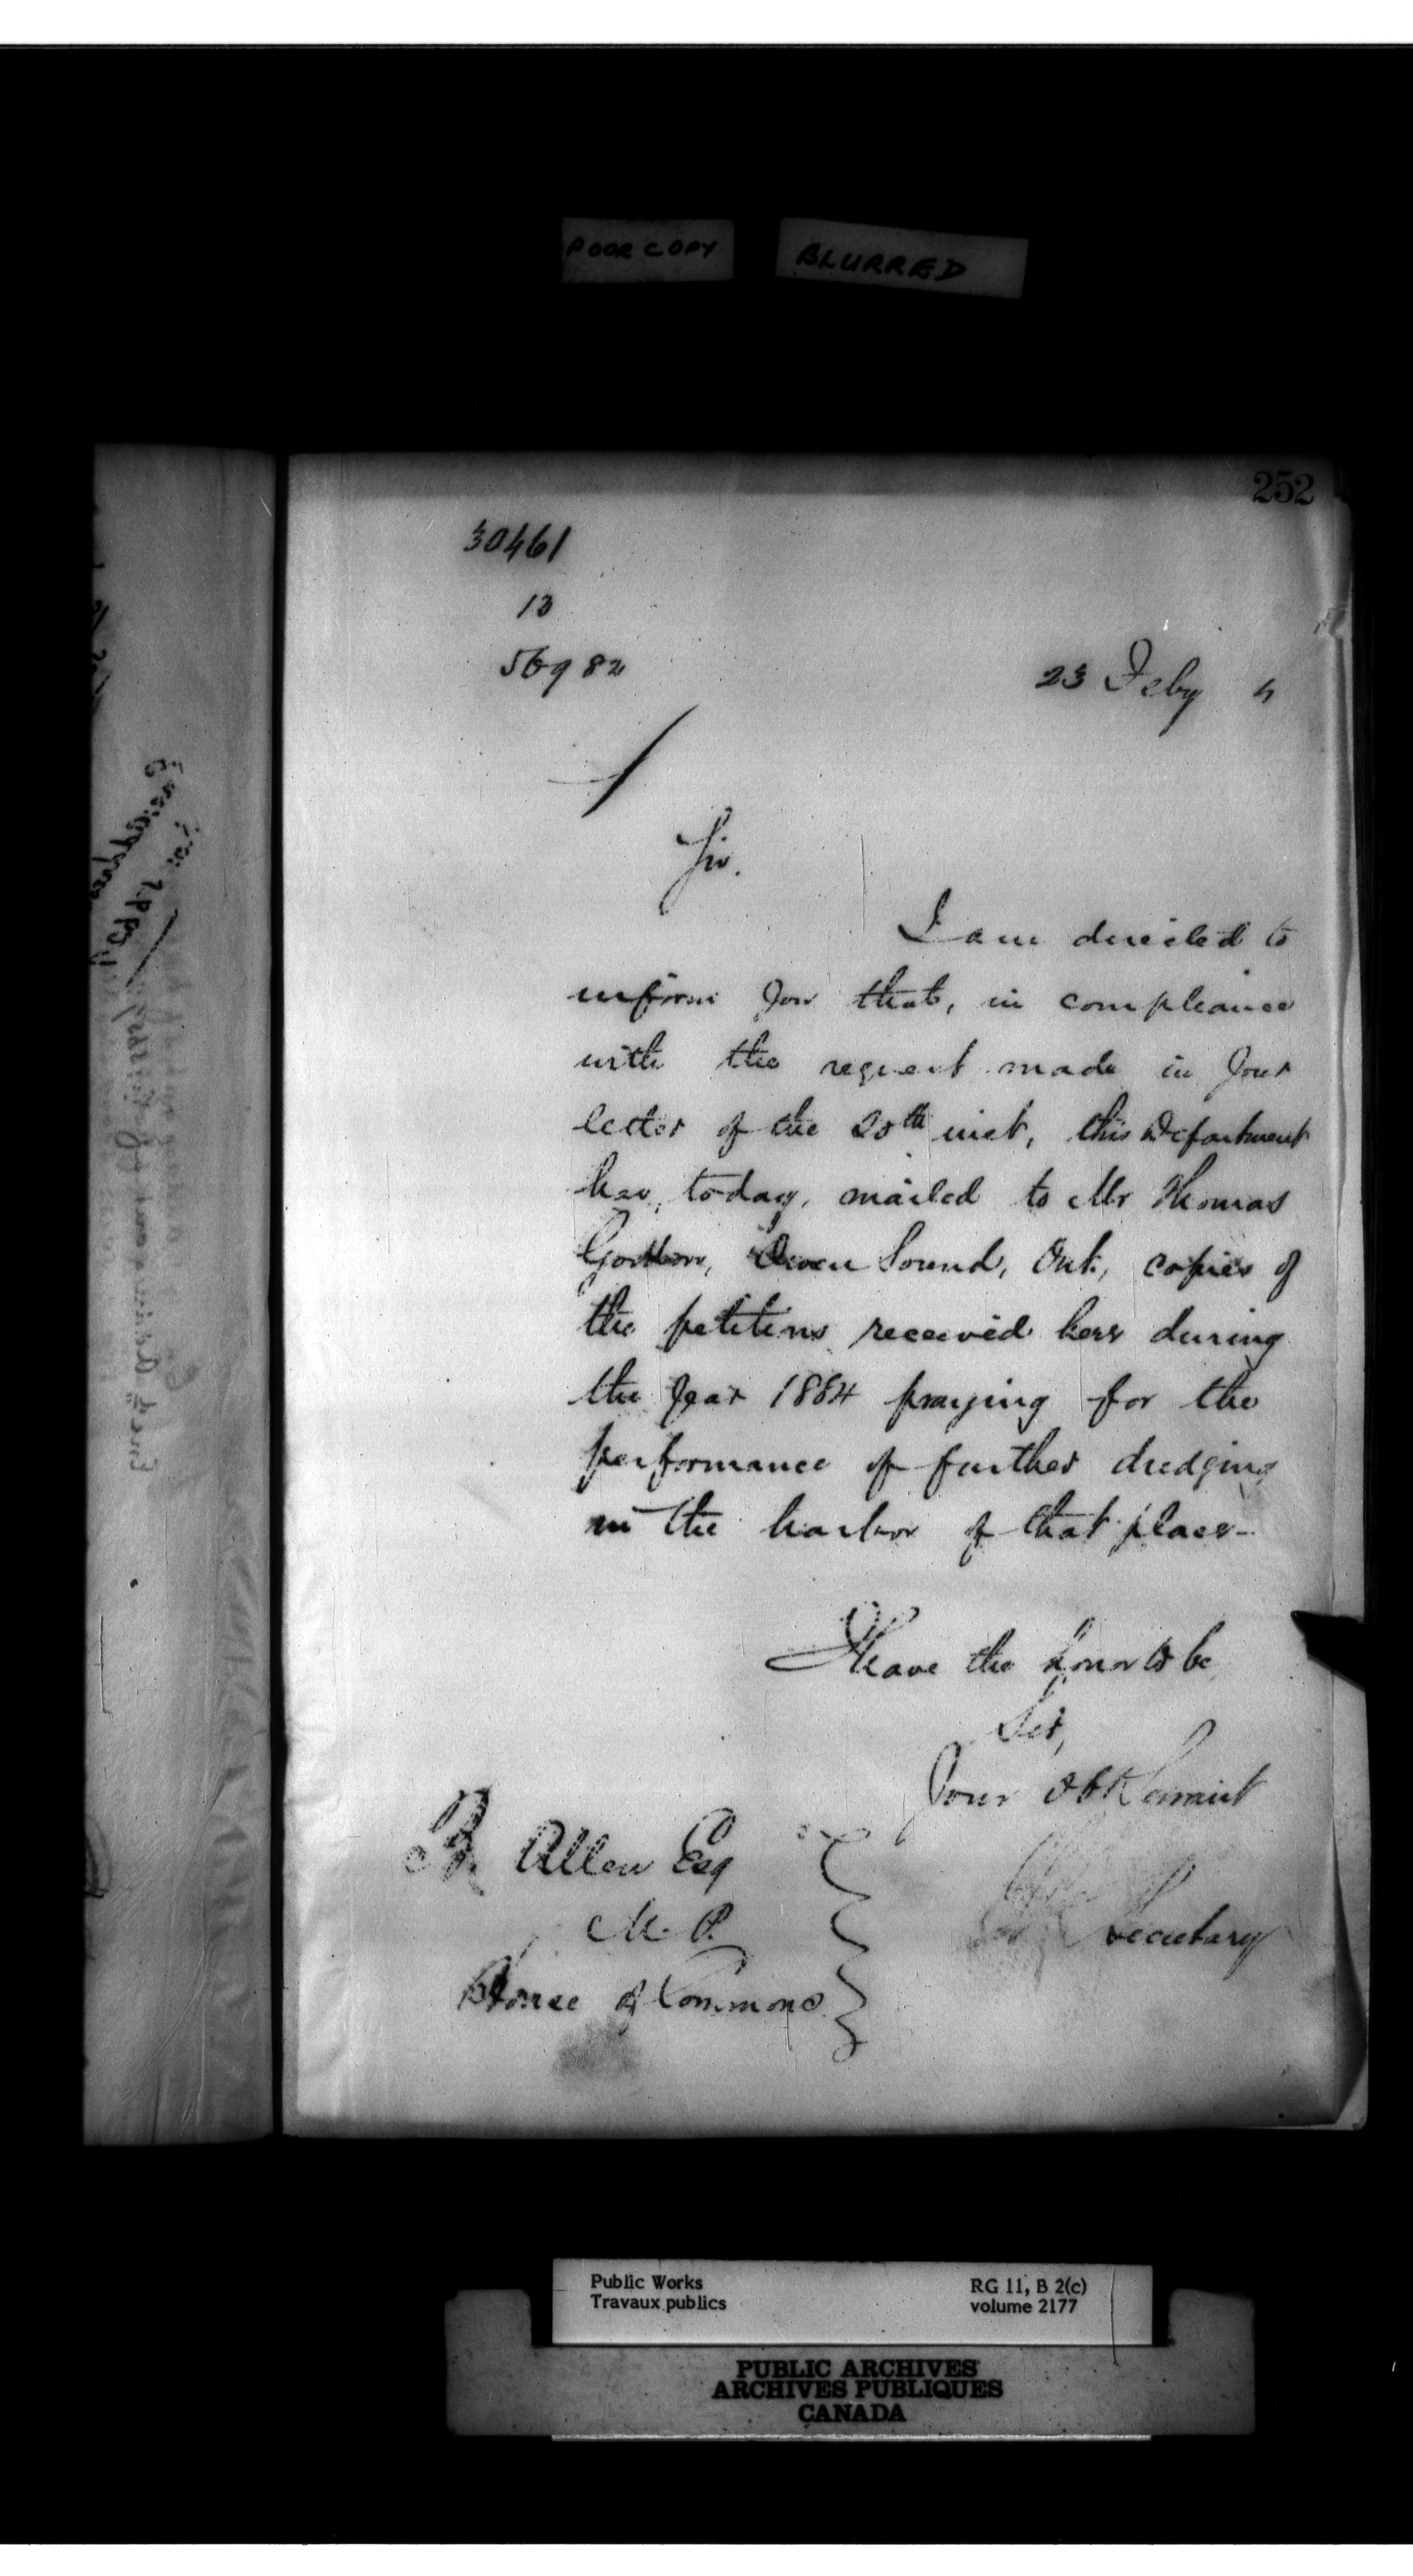 POOR COPY BLURRED
252
30461
13
56982
23 Feby 5
Sir.
I am directed to
inform you that, in compliance
with the request made in your
letter of the 20th inst, this Department
has, today, mailed to Mr Thomas
Gordon, Owen Sound, Ont, copies of
the petitions received here during
the year 1884 praying for the
performance of further dredging
in the harbor of that place-
I have the honor to be
Sir,
Your Obt Servant
Allen Esq
M. P.
Secretary
House of Commons
Public Works
Travaux publics
RG 11, B 2(c)
volume 2177
PUBLIC ARCHIVES
ARCHIVES PUBLIQUES
CANADA